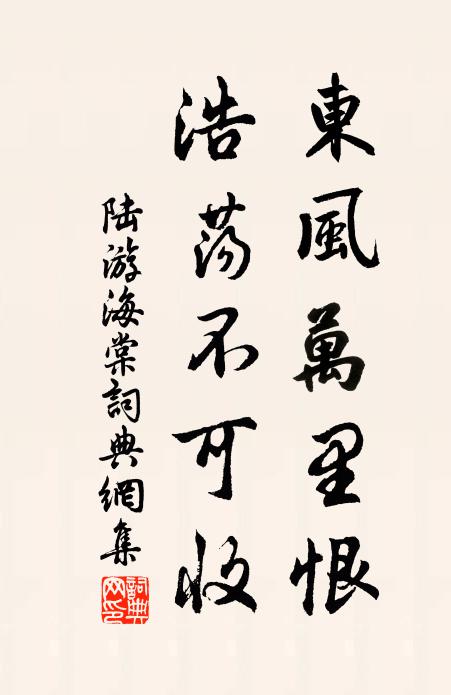 東風萬里恨
浩蕩不可收
陆游海棠詞典網集
詞典网印